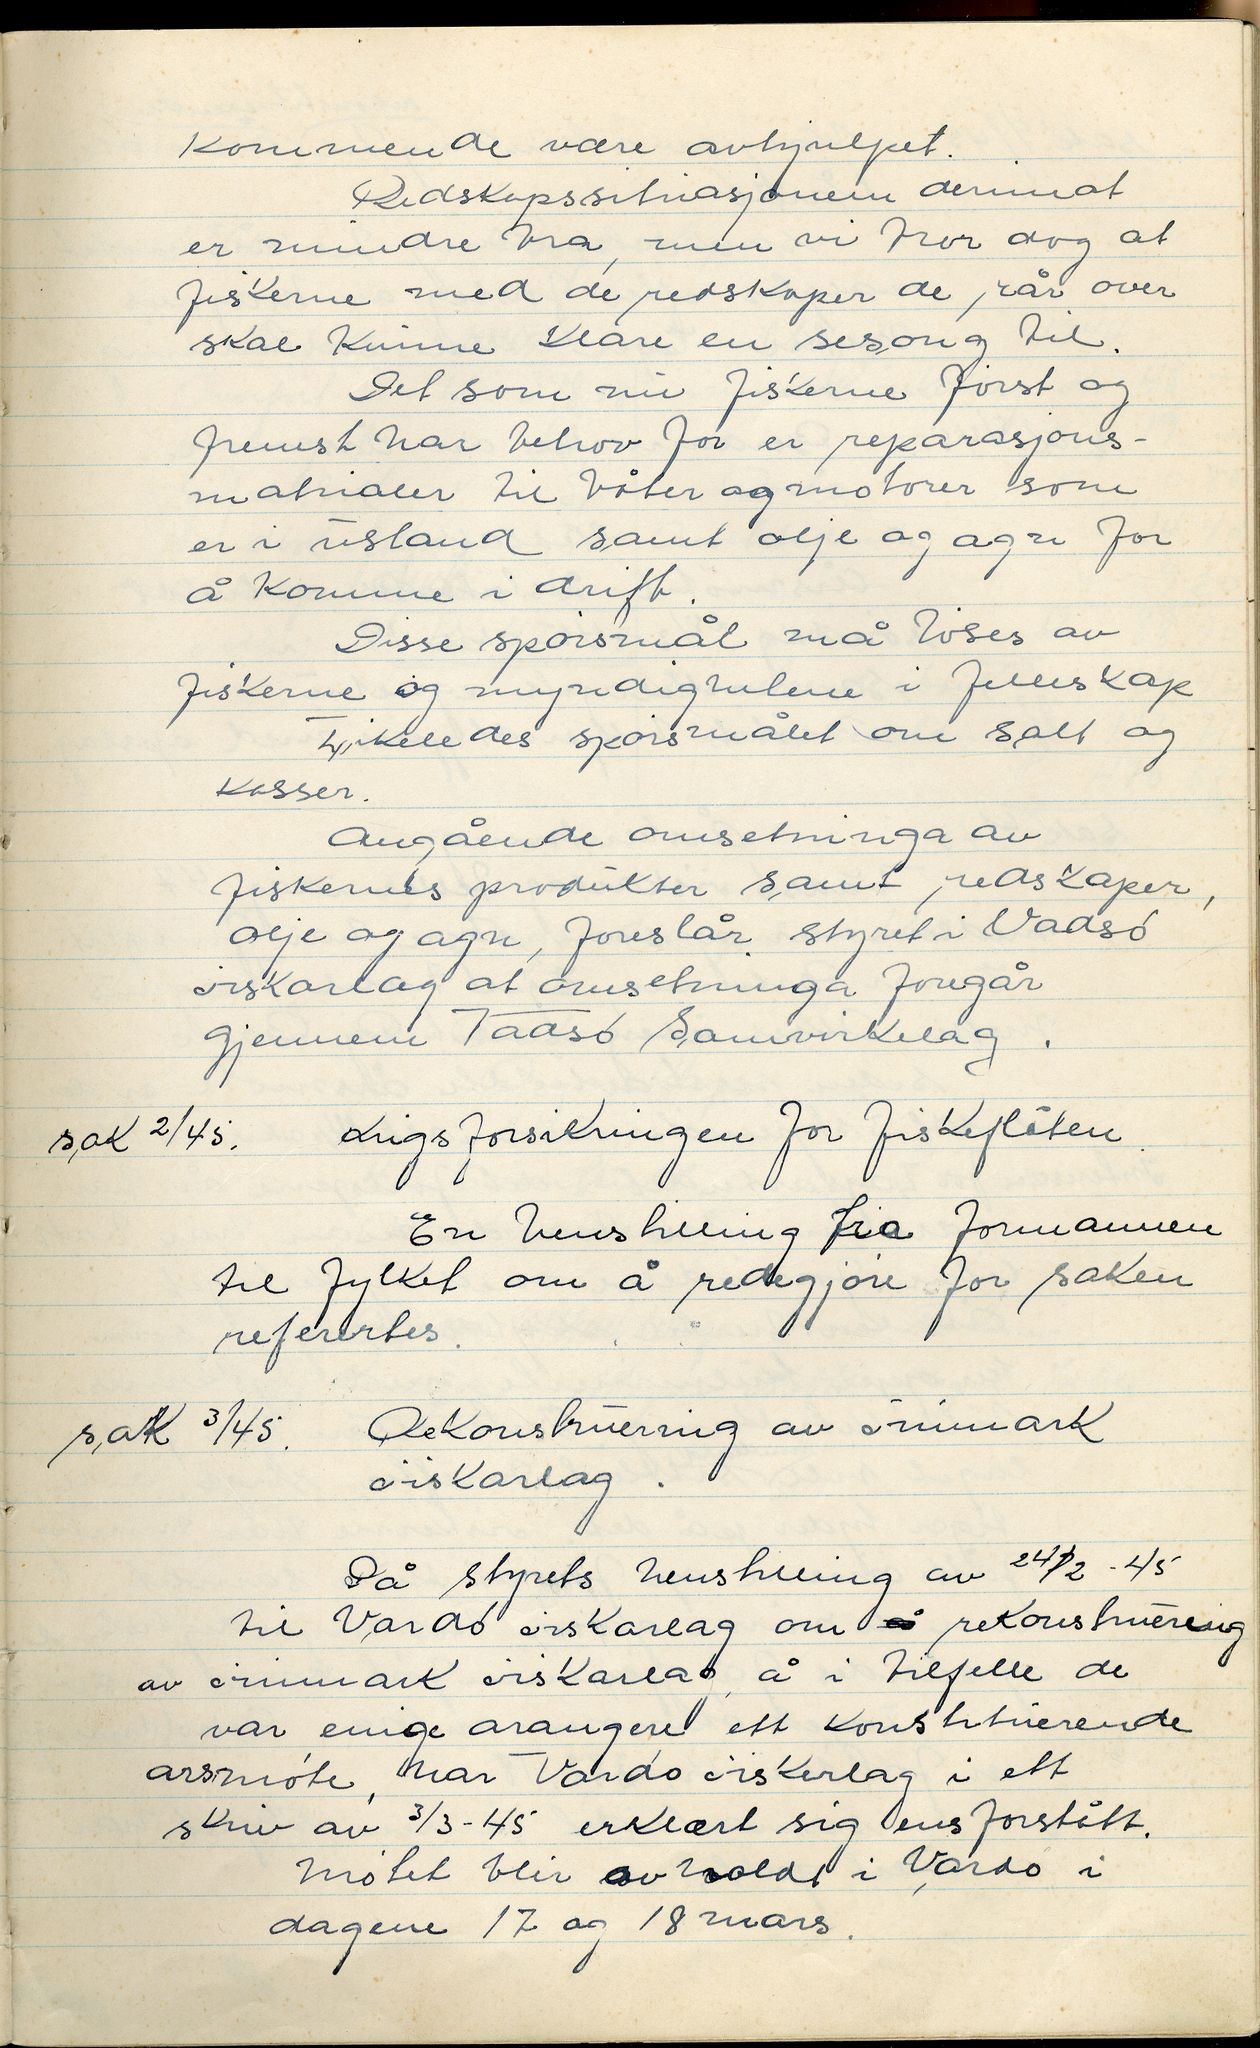 kommende være avhjulpet.
Redskapssituasjonen derimot
er mindre bra, men vi tror dog at
fiskerne med de redskaper de rår over
skal kunne klare en sesong til.
Det som nu fiskerne først og
fremst har behov for er reparasjons-
matrialer til båter og motorer som
er i ustand samt olje og agn for
å komme i drift.
Disse spørsmål må løses av
fiskerne og myndighetene i felleskap
Likeledes spørsmålet om salt og
kasser.
Angående omsetninga av
fiskernes produkter samt redskaper,
olje og agn, foreslår styret i Vadsø
Fiskarlag at omsetninga foregår
gjennem Vadsø Samvirkelag.
sak 2/45. Krigsforsikringen for fiskeflåten.
En henstilling fra formannen
til fylket om å redegjøre for saken
referertes.
sak 3/45. Rekonstruering av Finnmark
Fiskarlag.
På styrets henstilling av 24/2-45
til Vardø Fiskarlag om rekonstruering
av Finnmark Fiskarlag, å i tilfelle de
var enige arangere ett konstituerende
arsmøte, har Vardø Fiskerlag i ett
skriv av 3/3-45 erklært sig ensforstått.
Møtet blir avholdt i Vardø i
dagene 17 og 18 mars.